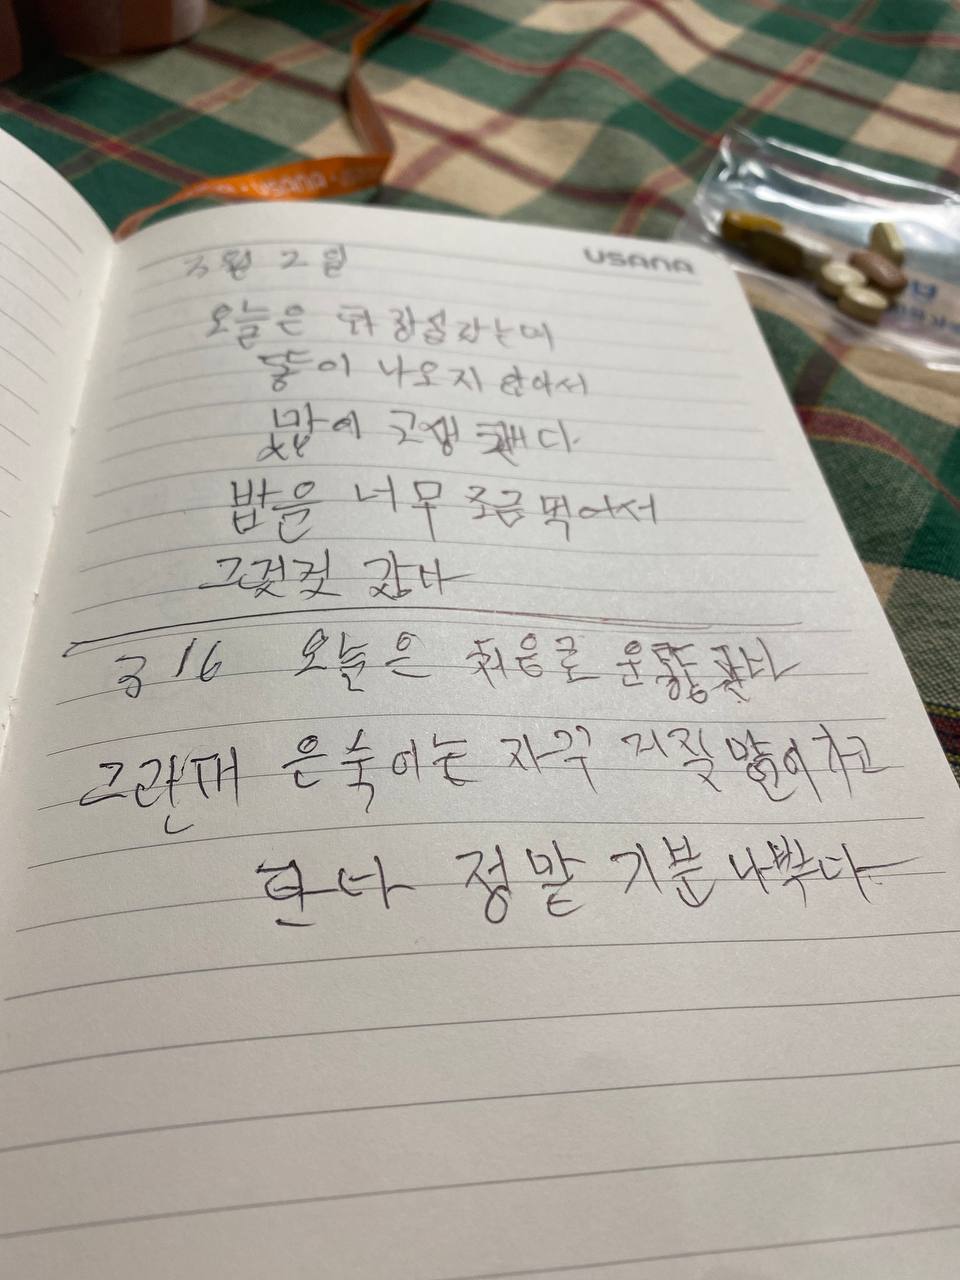 USANA
USANA
3월 2일
오늘은 화장실갔는데
똥이 나오지 안아서
밖에 고생 했다.
밥을 너무 조금 먹어서
그런것 같다
3 16 오늘은 처음로 운동
그란대 은숙이는 자꾸 거짓말이라고
한다 정말 기분 나빴다